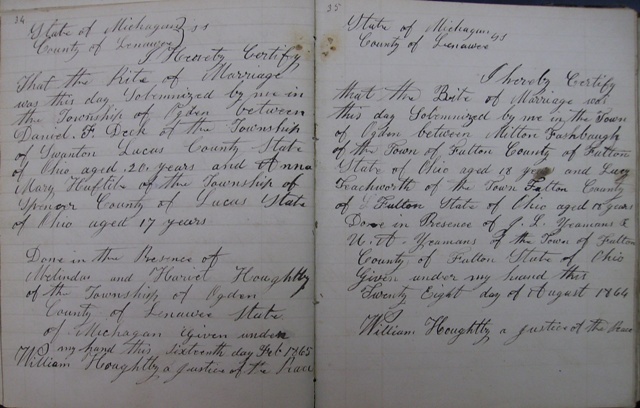 34
State of Michagan } ss
County of Lenawee
I Hereby Certify
That the Rite of Marriage
was this day Solemnized by me in
the Township of Ogden between
Daniel. F. Deck of the Township
of Swanton Lucas County State
of Ohio aged 20, years and Anna
Mary of the Township of
Spencer County of Lucas State
of Ohio aged 17 years
Done in the Presence of
Melinda and Hariet Houghtby
of the Township of Ogden
County of Lenawee State
of Michagan Given under
my hand this Sixteenth day Feb 1865
William Houghtby a Justice of the Peace
35
State of Michagan
County of Lenawee ss
I hereby Certify
that the Rite of Marriage was
this day Solemnized by me in the Town
of Ogden between Milton Fashbaugh
of the Town of Fulton County of Fulton
State of Ohio aged 18 years and Lucy
of the Town Fulton County
of Fulton State of Ohio aged 18 years
Done in Presence of J. L. Yeamans &
U. A. Yeamans of the Town of Fulton
County of Fulton State of Ohio
Given under my hand this
Twenty Eight day of August 1864
William Houghtby a Justice of the Peace